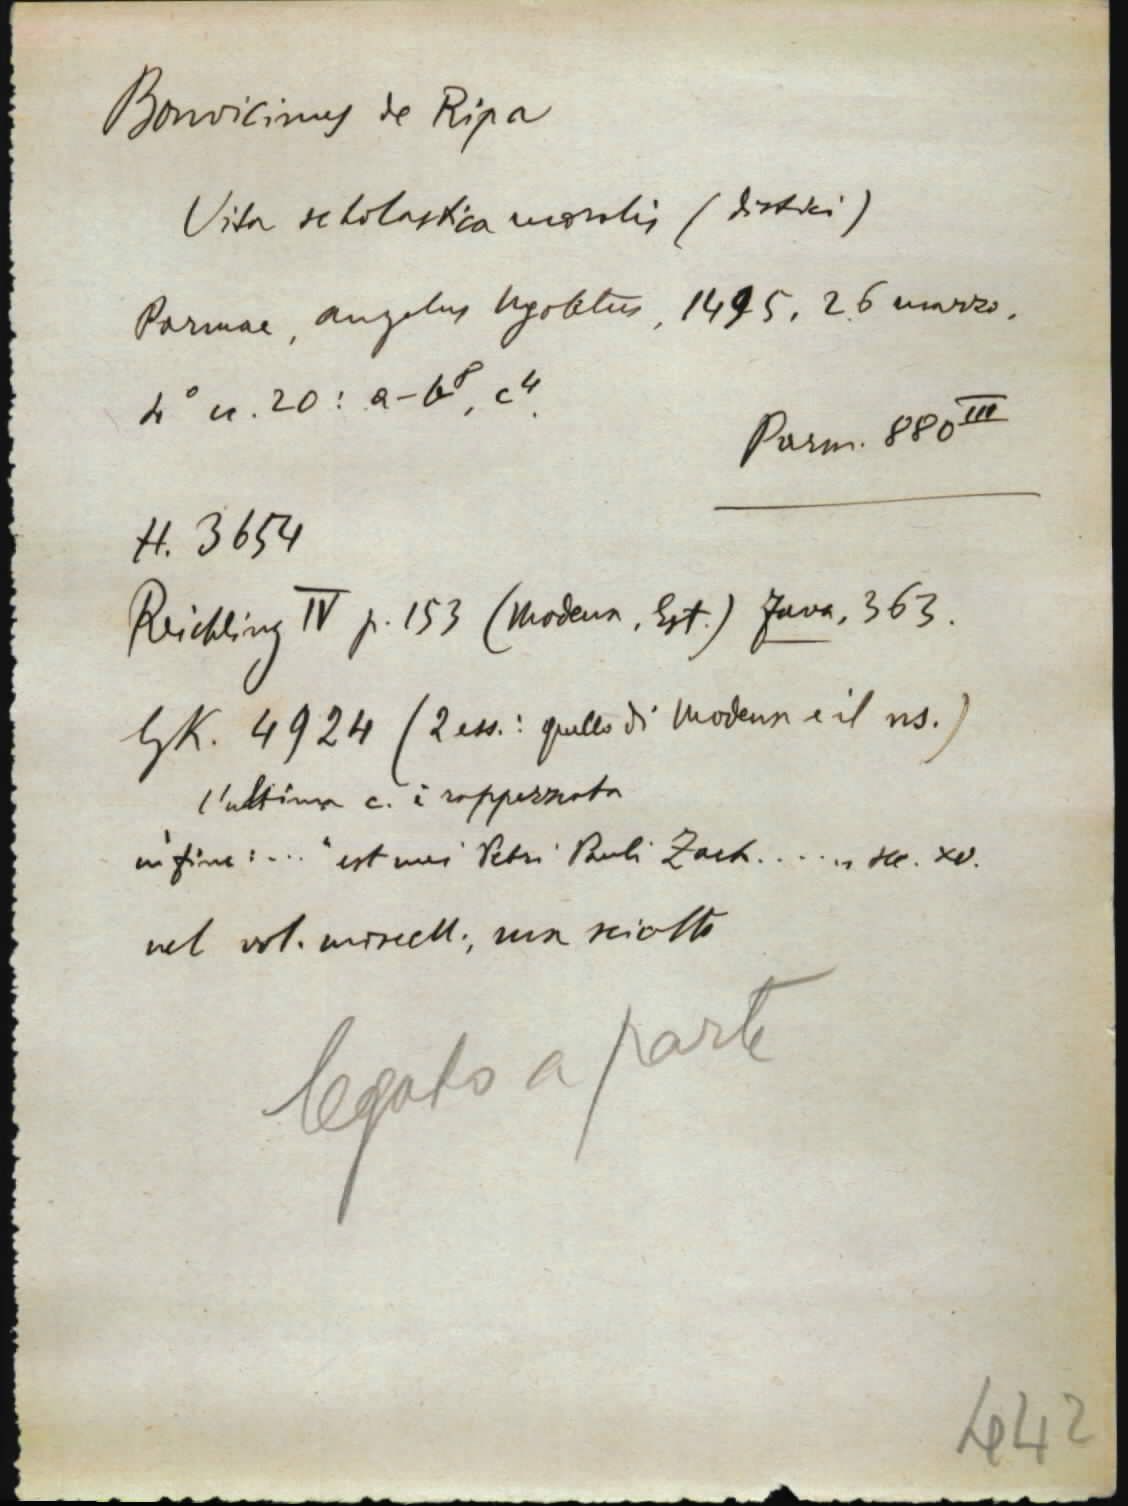 Bonvicinus de Ripa
Vita scholastica moralis (distici)
Parmae, Angelus Ugoletus, 1495, 26 marzo.
4° cc. 20: a-b⁸, c⁴.
Parm. 880 III
H. 3654
Reichling IV p. 153 (Modena, Est.) Fava, 363.
GK. 4924 (2 ess.: quello di Modena e il ns.)
l'ultima c. è rappezzata
in fine: ... "est mei Petri Pauli Zach....." sec. XV.
nel vol. miscell., ma sciolto
legato a parte
442